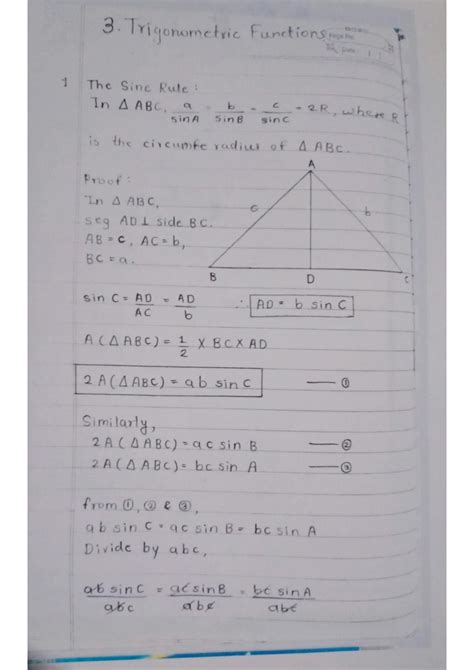 3. Trigonometric Functions
Page No.
Date
1 The Sine Rule :
In Δ ABC, a/sinA = b/sinB = c/sinC = 2R, where R
is the circumfe radius of Δ ABC.
Proof :
In Δ ABC,
seg AD ⊥ side BC.
AB = c, AC = b,
BC = a.
A
c b
B D C
sin C = AD/AC = AD/b ∴ AD = b sin C
A(Δ ABC) = 1/2 × BC × AD
2 A(Δ ABC) = ab sin C —— ①
Similarly,
2A(Δ ABC) = ac sin B —— ②
2A(Δ ABC) = bc sin A —— ③
from ①, ② & ③,
ab sin C = ac sin B = bc sin A
Divide by abc,
ab sin C/abc = ac sin B/abc = bc sin A/abc